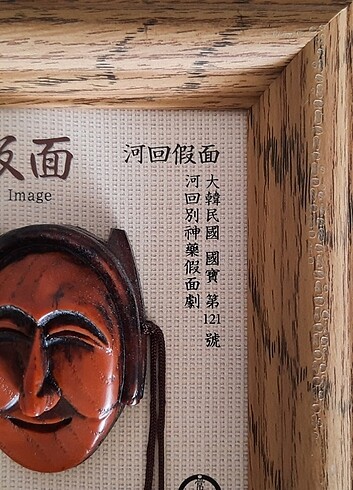 面
Image
河回假面
大韓民國 國寶 第121號
河回別神藥假面劇